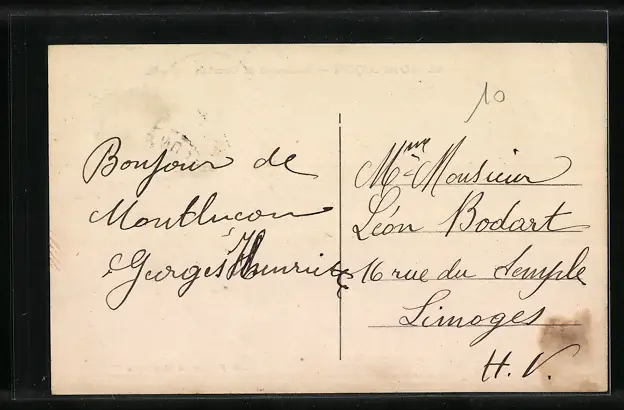 10
Bonjour de
Montlucon
Georges Henriette
Mme Monsieur
Léon Bodart
16 rue du Temple
Limoges
H. V.